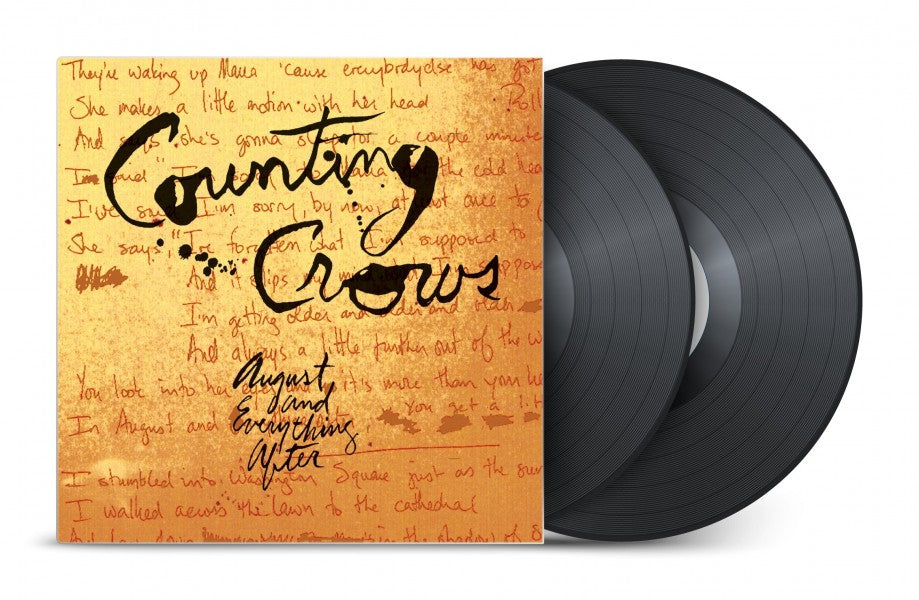 Counting
Crows
August
and
Everything
After
They're waking up Maria 'cause everybodyelse has got
She makes a little motion with her head Roll
And says she's gonna sleep for a couple minute
said "I'm sorry for the cold hea
I've said I'm sorry, by now, at least once to
She says, "I've forgotten what I'm supposed to
And it slips my mind
I'm getting older and older and older
And always a little further out of the w
You look into her eyes it's more than your he
In August and You get a lit
I stumbled into Washington Square just as the sun
I walked across the lawn to the cathedral
in the shadow of S